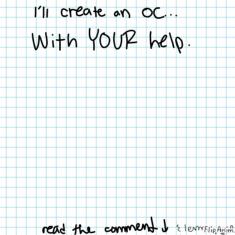 I'll create an OC...
With YOUR help.
read the comment ↓